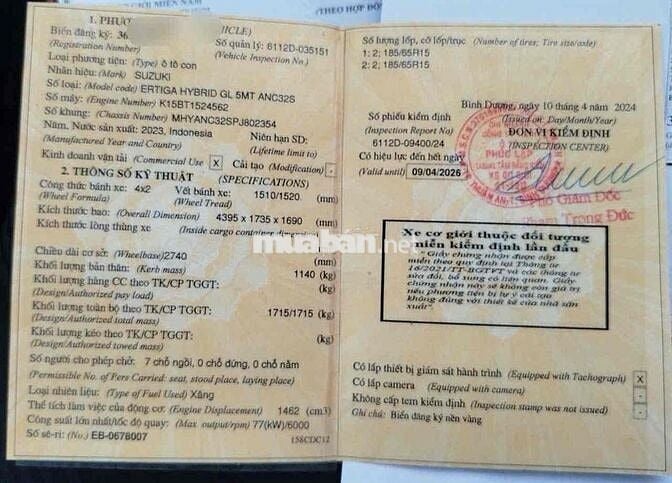 (THEO HỢP ĐỒ
1. PHƯƠ
HICLE)
Biển đăng ký: 36
(Registration Number)
Số quản lý: 6112D-035151
(Vehicle Inspection No.)
Loại phương tiện: (Type) ô tô con
Nhãn hiệu: (Mark) SUZUKI
Số loại: (Model code) ERTIGA HYBRID GL 5MT ANC32S
Số máy: (Engine Number) K15BT1524562
Số khung: (Chassis Number) MHYANC32SPJ802354
Năm, Nước sản xuất: 2023, Indonesia
Niên hạn SD:
(Manufactured Year and Country)
(Lifetime limit to)
Kinh doanh vận tải (Commercial Use) X
Cải tạo (Modification) -
2. THÔNG SỐ KỸ THUẬT (SPECIFICATIONS)
Công thức bánh xe: 4x2
Vết bánh xe: 1510/1520 (mm)
(Wheel Formula)
(Wheel Tread)
Kích thước bao: (Overall Dimension) 4395 x 1735 x 1690 (mm)
Kích thước lòng thùng xe (Inside cargo container dimension)
Chiều dài cơ sở: (Wheelbase) 2740 (mm)
Khối lượng bản thân: (Kerb mass) 1140 (kg)
Khối lượng hàng CC theo TK/CP TGGT: (kg)
(Design/Authorized pay load)
Khối lượng toàn bộ theo TK/CP TGGT: 1715/1715 (kg)
(Design/Authorized total mass)
Khối lượng kéo theo TK/CP TGGT: (kg)
(Design/Authorized towed mass)
Số người cho phép chở: 7 chỗ ngồi, 0 chỗ đứng, 0 chỗ nằm
(Permissible No. of Pers Carried: seat, stood place, laying place)
Loại nhiên liệu: (Type of Fuel Used) Xăng
Thể tích làm việc của động cơ: (Engine Displacement) 1462 (cm3)
Công suất lớn nhất/tốc độ quay: (Max. output/rpm) 77(kW)/6000
Số sê-ri: (No.) EB-0678007
158CDC12
Số lượng lốp, cỡ lốp/trục (Number of tires; Tire size/axle)
1: 2; 185/65R15
2: 2; 185/65R15
Bình Dương, ngày 10 tháng 4 năm 2024
Số phiếu kiểm định
(Issued on: Day/Month/Year)
(Inspection Report No)
ĐƠN VỊ KIỂM ĐỊNH
6112D-09400/24
(INSPECTION CENTER)
Có hiệu lực đến hết ngày
(Valid until) 09/04/2026
Phó Giám Đốc
Phạm Trọng Đức
Xe cơ giới thuộc đối tượng
miễn kiểm định lần đầu
"Giấy chứng nhận được cấp
miễn theo quy định tại Thông tư
16/2021/TT-BGTVT và các thông tư
sửa đổi, bổ sung có liên quan. Giấy
chứng nhận này sẽ không còn giá trị
nếu phương tiện bị tự ý cải tạo
không đúng với thiết kế của nhà sản
xuất".
muaban.net
Có lắp thiết bị giám sát hành trình (Equipped with Tachograph) X
Có lắp camera (Equipped with camera) -
Không cấp tem kiểm định (Inspection stamp was not issued) -
Ghi chú: Biển đăng ký nền vàng